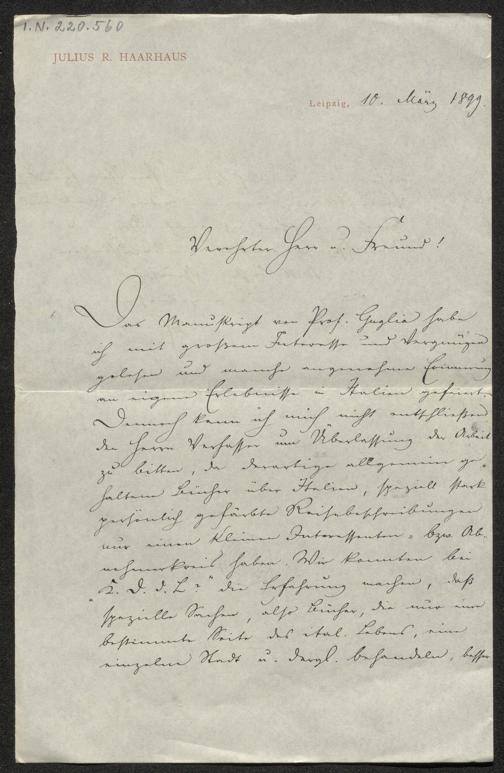 I.N. 220.560
JULIUS R. HAARHAUS
Leipzig, 10. März 1899.
Verehrter Herr u. Freund!
Das Manuskript von Prof. Guglia habe
ich mit großem Interesse und Vergnügen
gelesen und manche angenehme Erinnerung
an eigene Erlebnisse in Italien gefeiert.
Dennoch kann ich mich nicht entschließen
den Herrn Verfasser um Überlassung der Arbeit
zu bitten, da derartige allgemein ge-
haltene Bücher über Italien, speziell stark
persönlich gefärbte Reisebeschreibungen
nur einen kleinen Interessenten- bzw. Ab-
nehmerkreis haben. Wir konnten bei
die Erfahrung machen, daß
spezielle Sachen, also Bücher, die nur eine
bestimmte Seite des ital. Lebens, eine
einzelne Stadt u. dergl. behandeln, besser